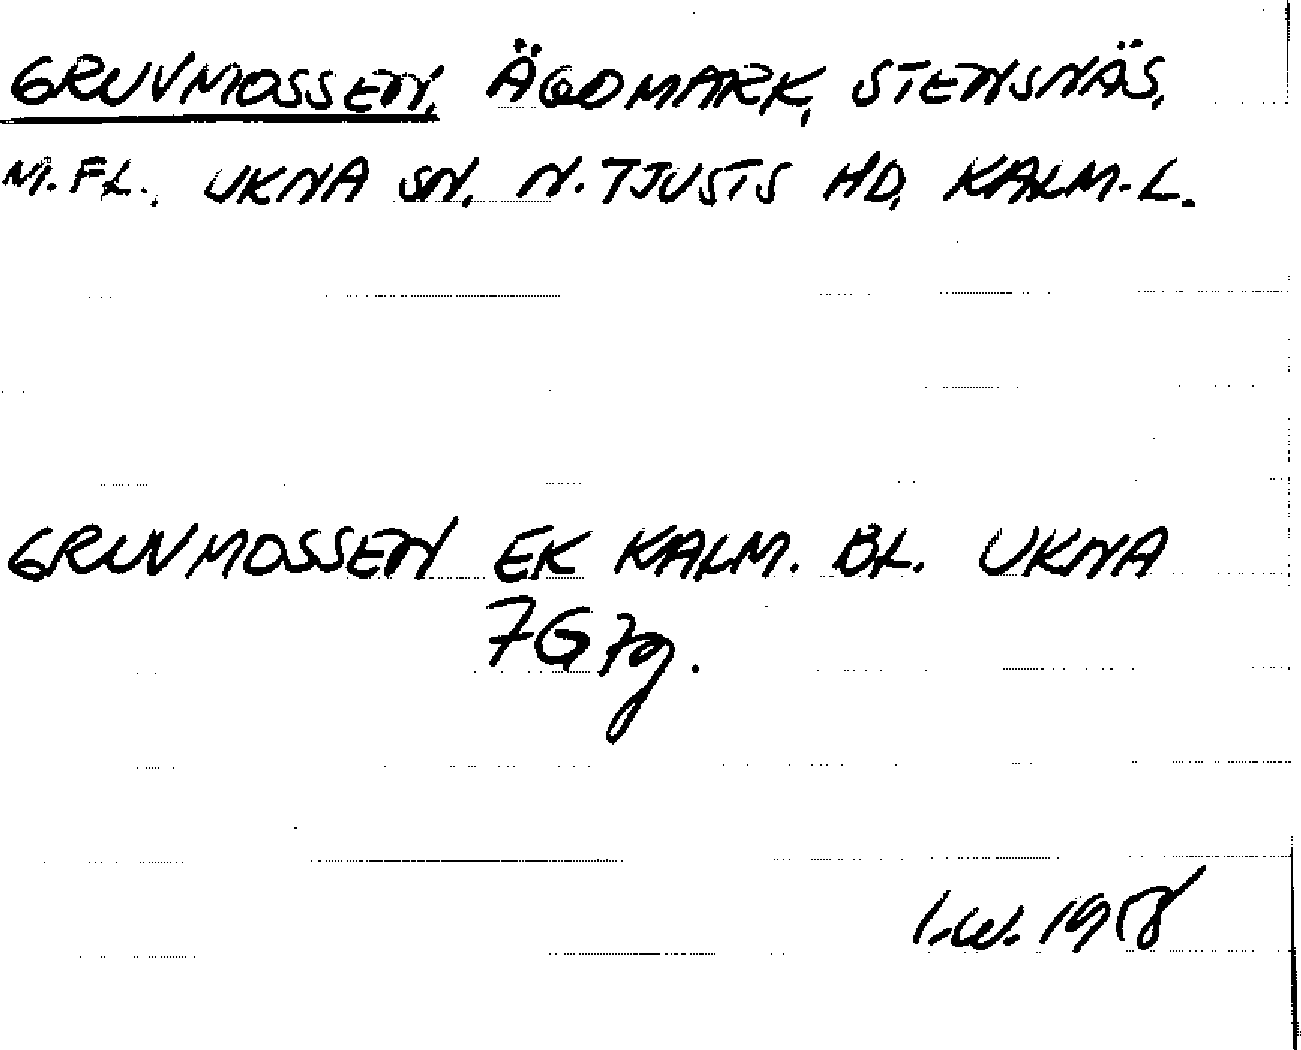 GRUVMOSSEN, ÄGOMARK, STENSNÄS,
M.FL., UKNA SN, N.TJUSTS HD, KALM.L.
GRUVMOSSEN EK KALM. BL. UKNA
7G7g.
1958